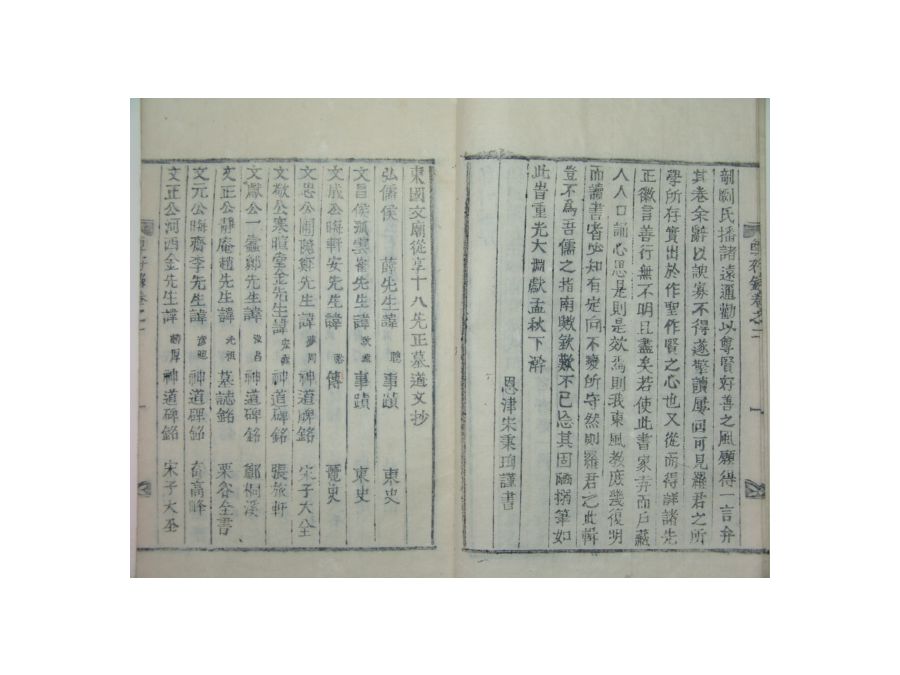 剞劂氏播諸遠邇勸以尊賢好善之風願得一言弁
其卷余辭以諛寡不得遂擎讀屢回可見羅君之所
學所存實出於作聖作賢之心也又從而得詳諸先
正徽言善行無不明且盡矣若使此書家弆而戶藏
人人口誦心思是則是效爲則我東風敎庶幾復明
而讀書者必知有定向不變所守然則羅君之此輯
豈不為吾儒之指南歟欽歎不已忘其固陋搦筆如
此旹重光大淵獻孟秋下澣
恩津宋秉珣謹書
東國文廟從享十八先正墓道文抄
弘儒侯 薛先生諱 聰 事蹟 東史
文昌侯孤雲崔先生諱 致遠 事蹟 東史
文成公晦軒安先生諱 裕 傳 麗史
文忠公圃隱鄭先生諱 夢周 神道碑銘 宋子大全
文敬公寒暄堂金先生諱 宏弼 神道碑銘 張旅軒
文獻公一蠹鄭先生諱 汝昌 神道碑銘 鄭桐溪
文正公靜庵趙先生諱 光祖 墓誌銘 栗谷全書
文元公晦齋李先生諱 彦迪 神道碑銘 奇高峰
文正公河西金先生諱 麟厚 神道碑銘 宋子大全